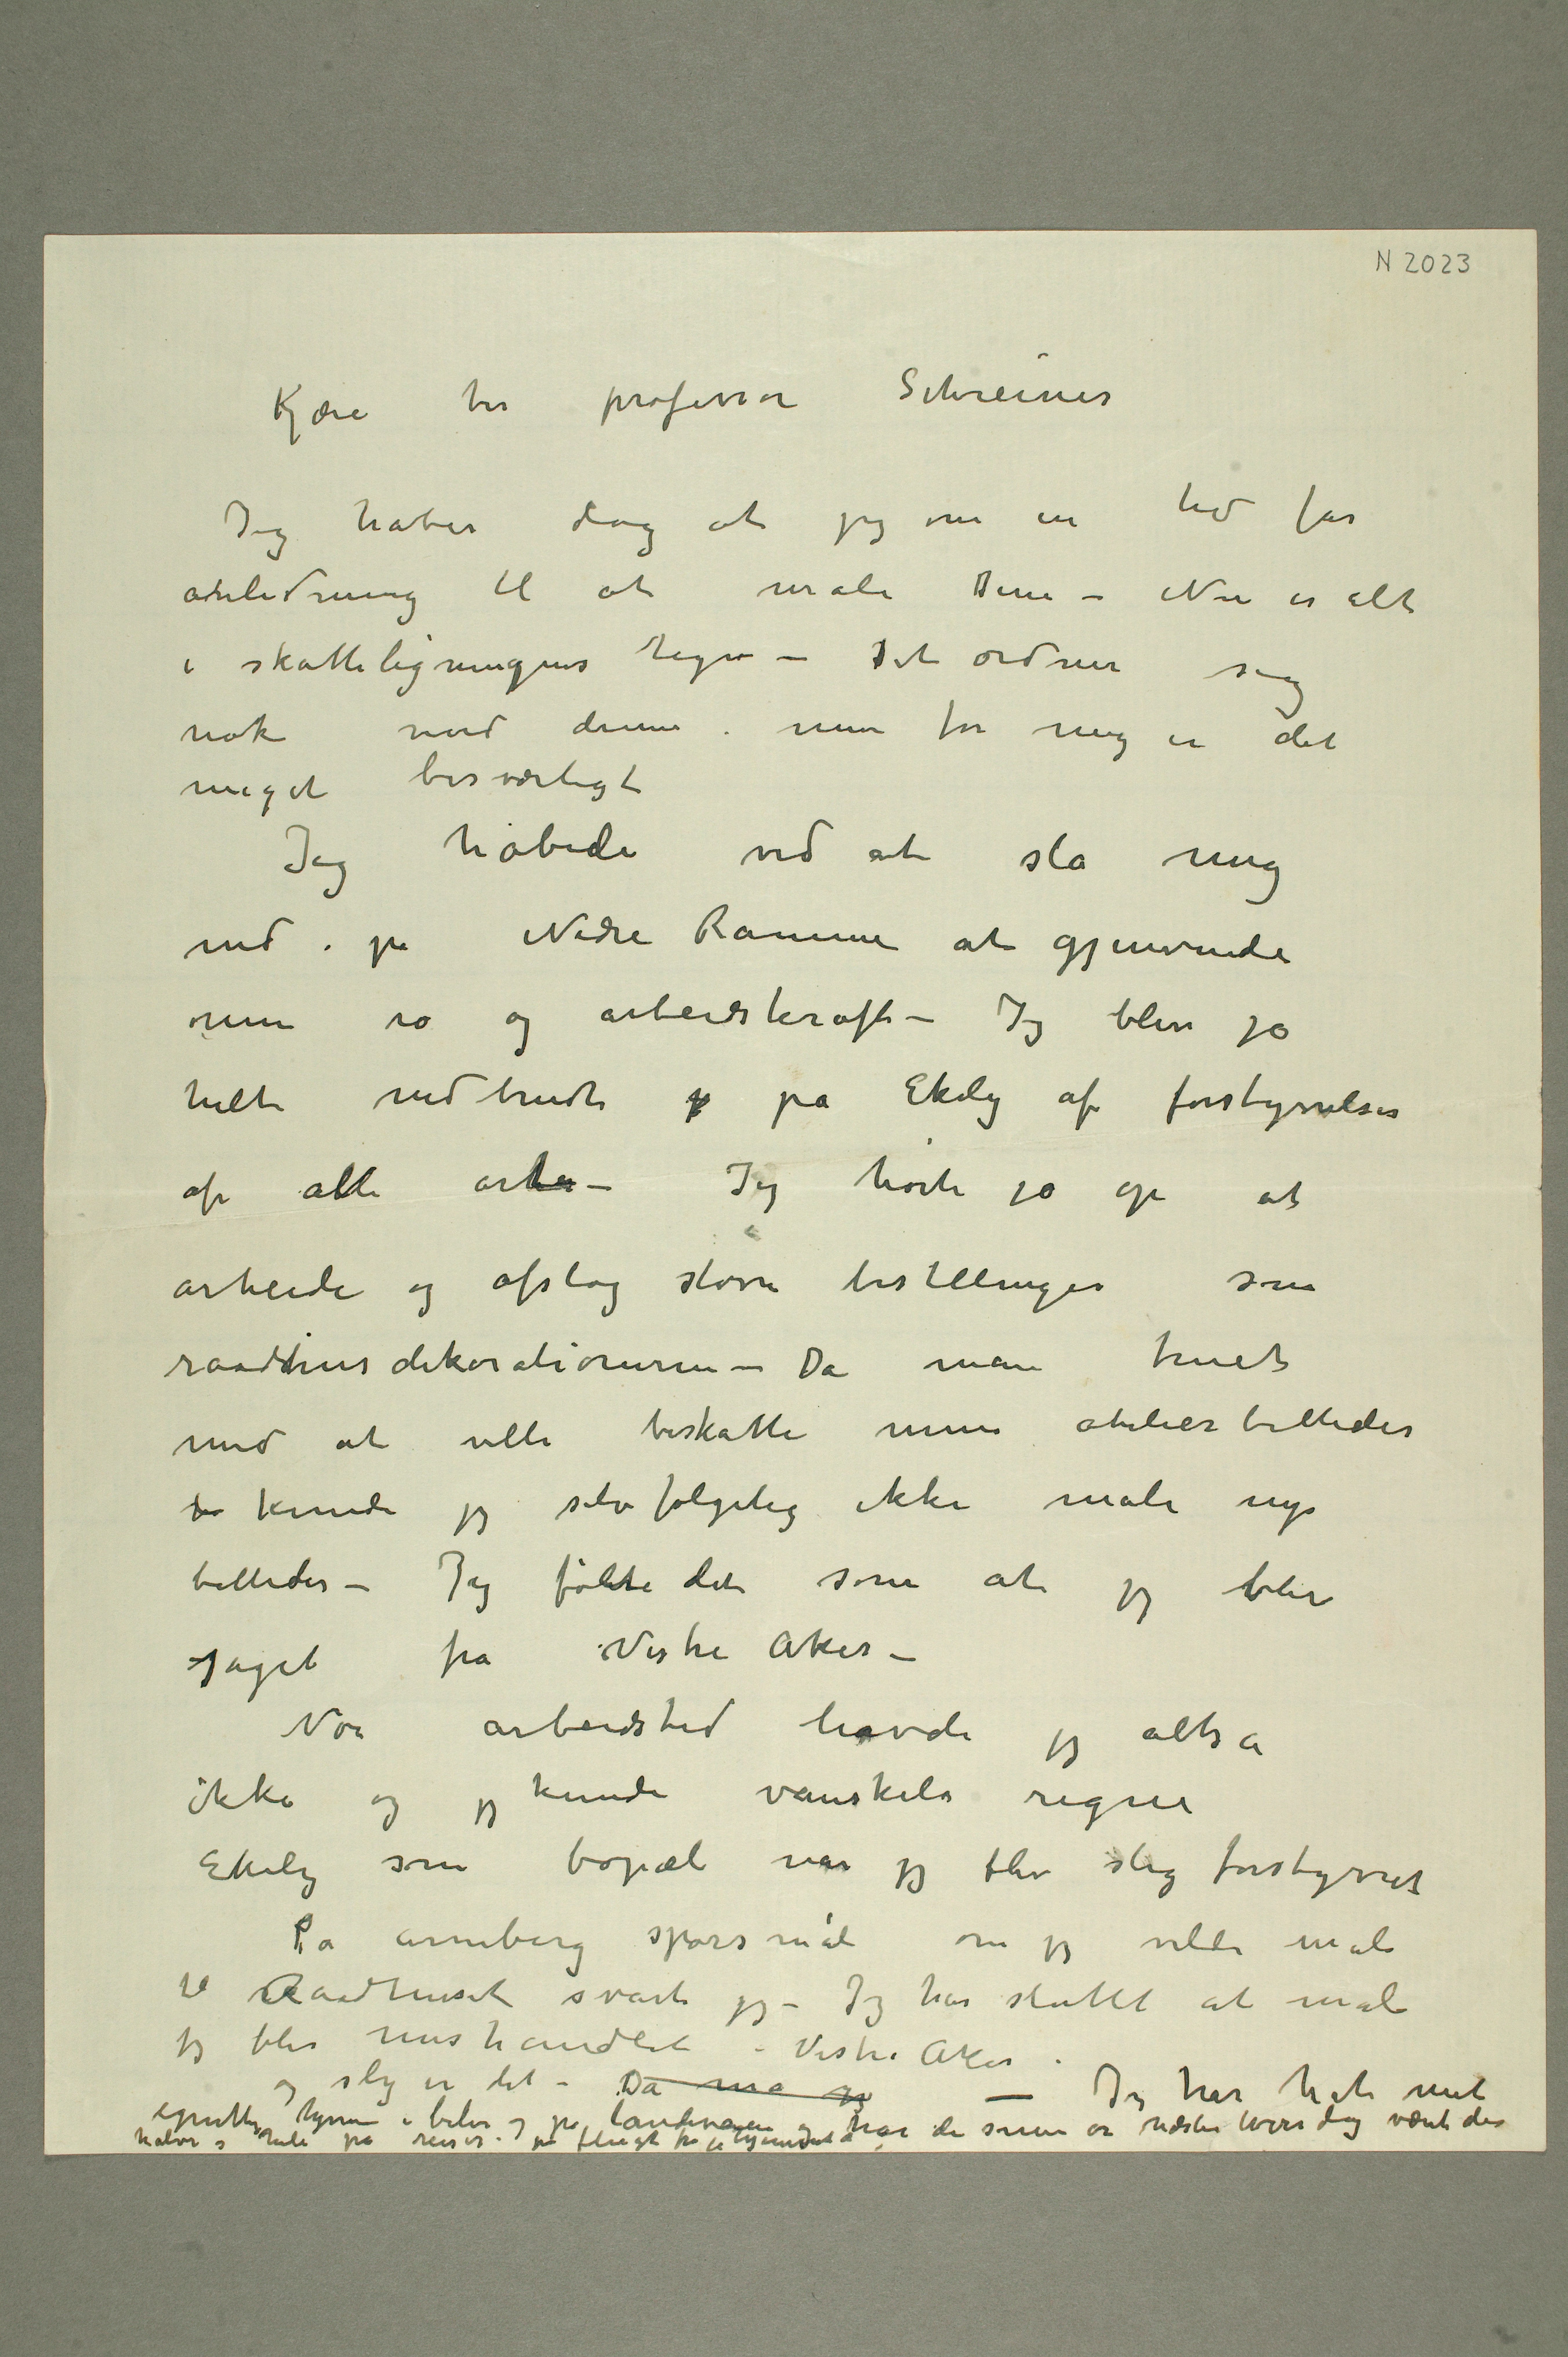 N 2023
Kjære hr professor Schreiner
Jeg håber dog at jeg om en tid får
anledning til at male Dem – Nu er alt
i skatteligningens tegn – Det ordner sig
nok med denne. men for mig er det
meget besværligt
Jeg håbede ved at slå mig
ned på Nedre Ramme at gjenvinde
min ro og arbeidskraft – Jeg blev jo
helt nedbrudt på Ekely af forstyrrelser
af alle arter – Jeg hørte jo op at
arbeide og afslog større bestillinger som
raadhusdekorationerne – Da man truet
med at ville beskatte mine atelierbilleder
kunde jeg selvfølgelig ikke male nye
billeder – Jeg følte det som at jeg blev
jaget fra Vestre Aker –
Nor arbeidsted havde jeg altså
ikke og jeg kunde vanskelig regne
Ekely som bopæl når jeg blev slig forstyrret
På Arneberg spørsmål om jeg vilde male
til Raadhuset svarte jeg – Jeg har sluttet at male
jeg blir mishandlet i Vestre Aker.
og slig er det – Da må jeg – Jeg har hat mit
egentlige hjem i biler og på landeveien og har de somre næsten hver dag været der
halve og hele på reiser. på flugt fra